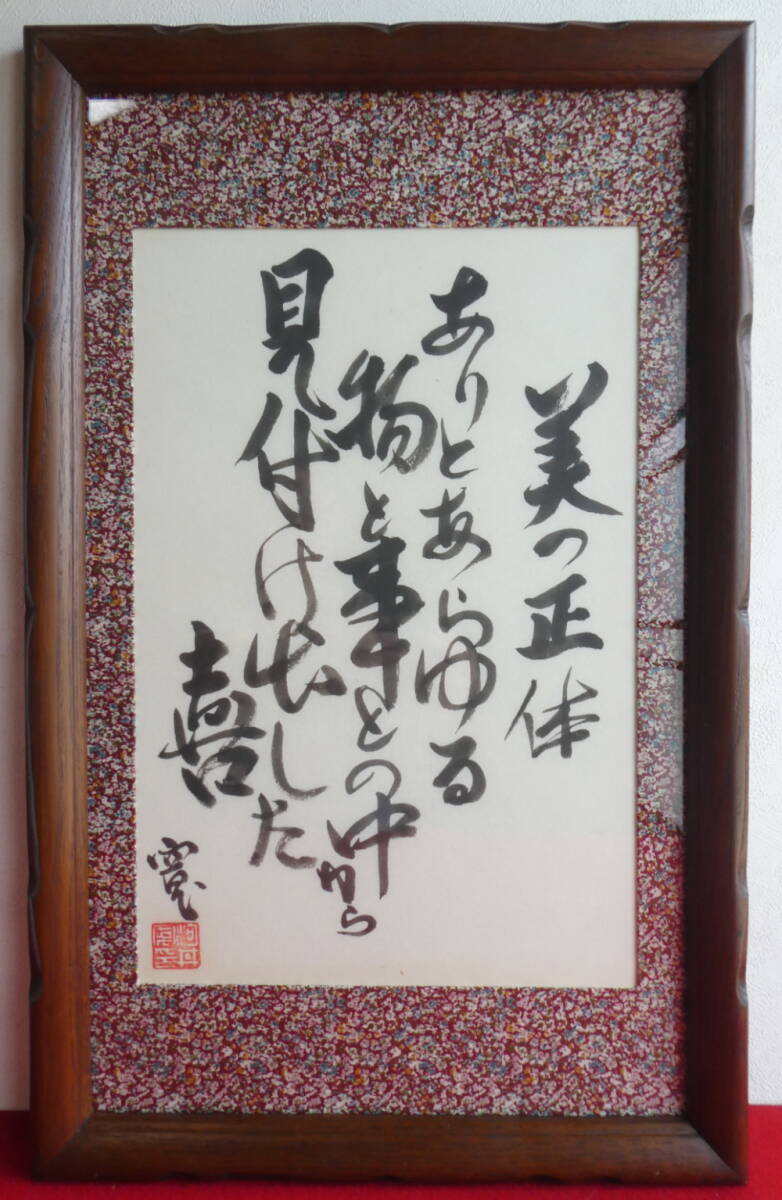 美の正体
ありとあらゆる
物と事との中から
見付け出した
喜
寛
河井寛印